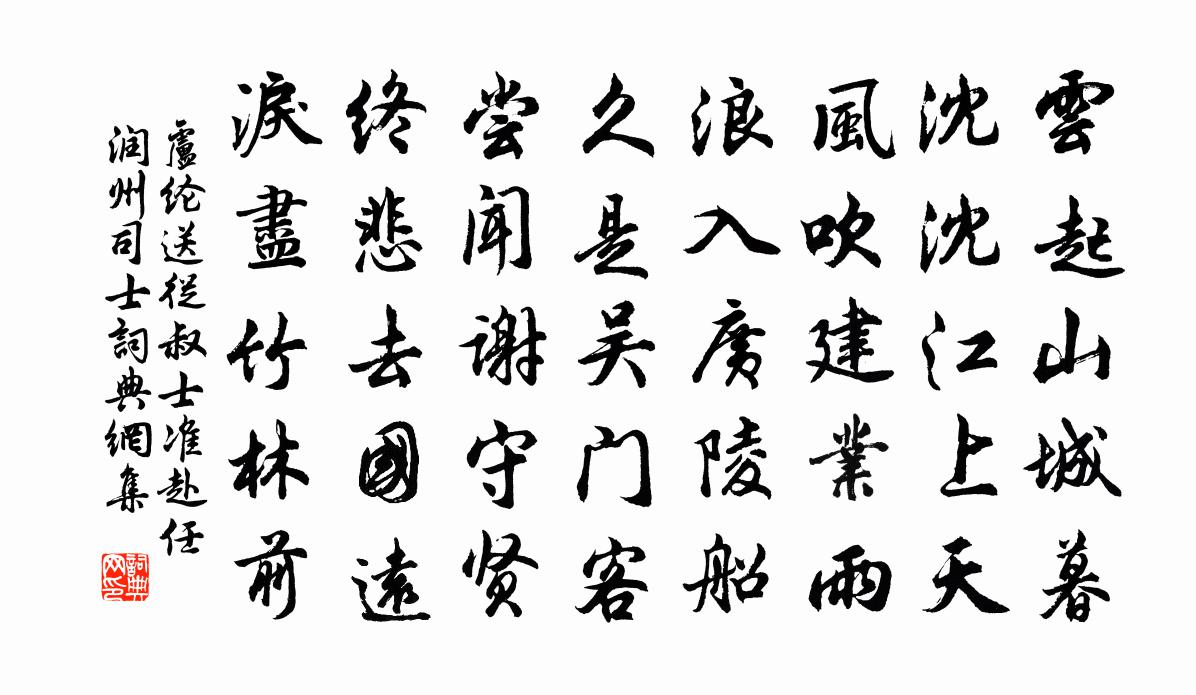 雲起山城暮
沈沈江上天
風吹建業雨
浪入廣陵船
久是吴门客
尝闻谢守贤
终悲去國遠
淚盡竹林前
盧纶送從叔士准赴任
润州司士詞典網集
詞典网印